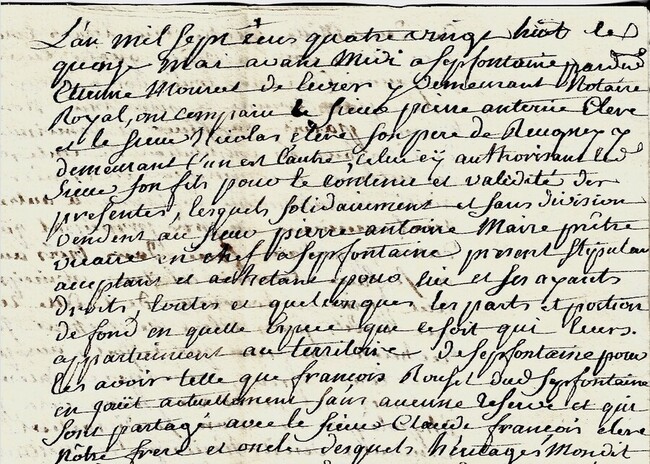 L'an mil sept cens quatre vingt huit le
quinze mai avant midi a Sepfontaine pardvt
Etienne Mouret de levier y demeurant Notaire
Royal, ont comparu le Sieur pierre antoine eleve
et le Sieur Nicolas eleve son pere de Reugney y
demeurant l'un est l'autre, celui cy authorisant led
Sieur son fils pour le contenu et validité des
presentes, lesquels solidairement et sans division
vendent au Sieur pierre antoine Maire prêtre
vicaire en chef a Sepfontaine present stipulan
acceptant et achetant pour lui et ses ayants
droits, toutes et quelconques les parts et portion
de fond en quelle espece que ce soit qui leurs
appartiennent au territoire de Sepfontaine pour
les avoir telle que françois Rouset dud Sepfontaine
en jouit actuellement sans aucune reserve et qui
sont partagé avec le Sieur Claude françois eleve
Nôtre frere et oncle desquels héritages Mondit